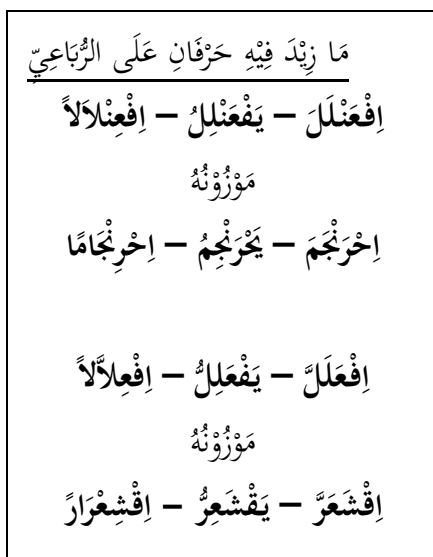 مَا زِيْدَ فِيْهِ حَرْفَانِ عَلَى الرُّبَاعِيّ
اِفْعَنْلَلَ – يَفْعَنْلِلُ – اِفْعِنْلاَلاً
مَوْزُوْنُهُ
اِحْرَنْجَمَ – يَحْرَنْجِمُ – اِحْرِنْجَامًا
اِفْعَلَلَّ – يَفْعَلِلُّ – اِفْعِلاَّلاً
مَوْزُوْنُهُ
اِقْشَعَرَّ – يَقْشَعِرُّ – اِقْشِعْرَارً